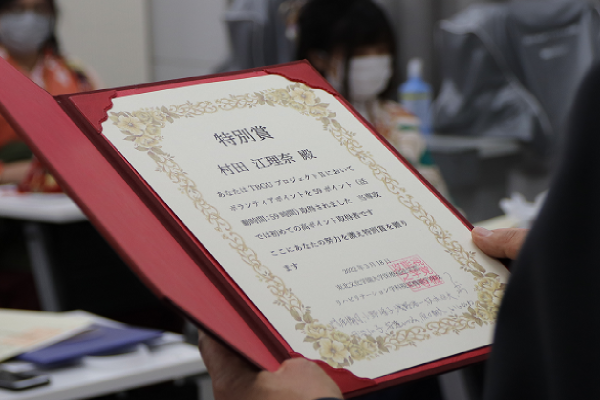 特別賞
村田 江理奈 殿
あなたは TBGU プロジェクトⅡにおいて
ボランティアポイントを 59 ポイント（活
動時間：59 時間）取得されました 当専攻
では初めての高ポイント取得者です
ここにあなたの努力を讃え特別賞を贈り
ます
2022 年 3 月 18 日
東北文化学園大学
リハビリテーション学科